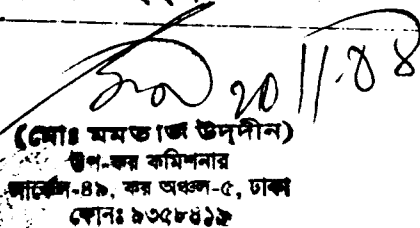 20/11.04
(মোঃ মমতাজ উদ্দীন)
উপ-কর কমিশনার
সার্কেল-৪৯, কর অঞ্চল-৫, ঢাকা
ফোনঃ ৯৩৫৮৪১৯